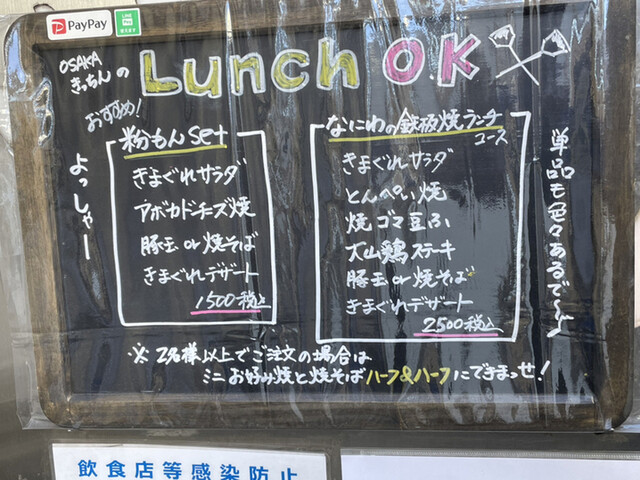 PayPay
LINE Pay
Lunch O.K
OSAKA
きっちんの
おすすめ!
よっしゃー
粉もんset
きまぐれサラダ
アボカドチーズ焼
豚玉or焼そば
きまぐれデザート
1500税込
なにわの鉄板焼ランチ
コース
きまぐれサラダ
とんぺい焼
焼ゴマ豆ふ
大山鶏ステーキ
豚玉or焼そば
きまぐれデザート
2500税込
単品も色々あるで〜〜
※2名様以上でご注文の場合は
ミニお好み焼と焼そばハーフ&ハーフにできまっせ!
飲食店等感染防止